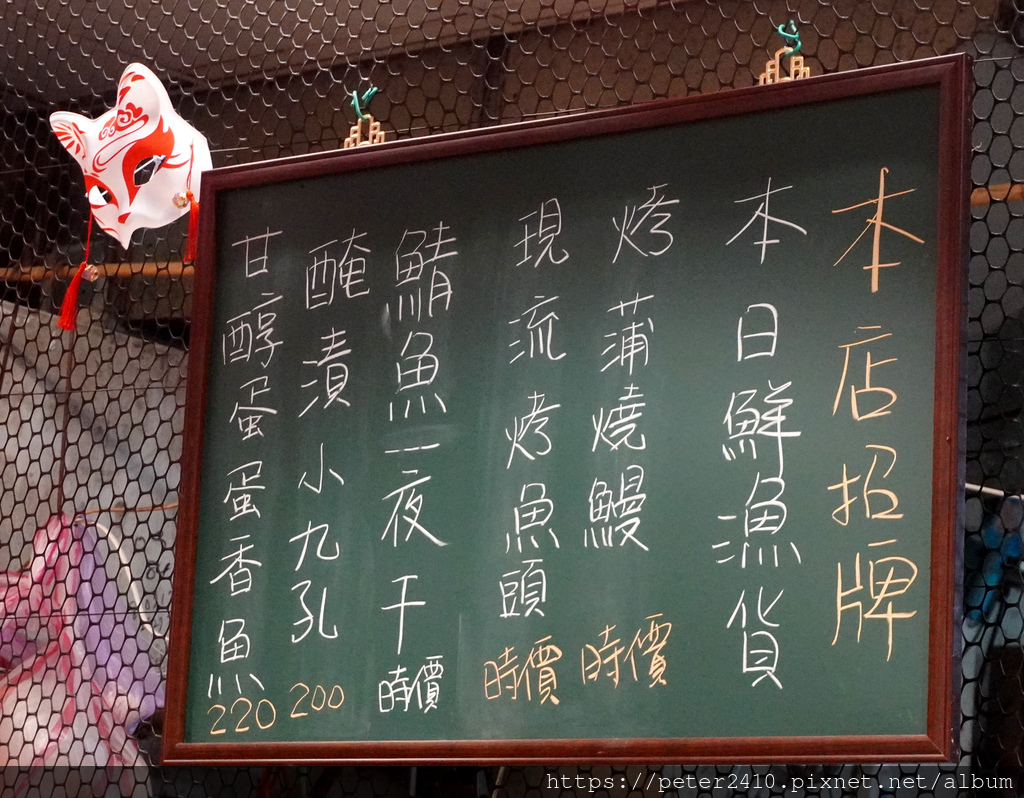 本店招牌
本日鮮漁貨
烤蒲燒鰻 時價
現流烤魚頭 時價
鯖魚一夜干 時價
醃漬小九孔 200
甘醇蛋蛋香魚 220
https://peter2410.pixnet.net/album